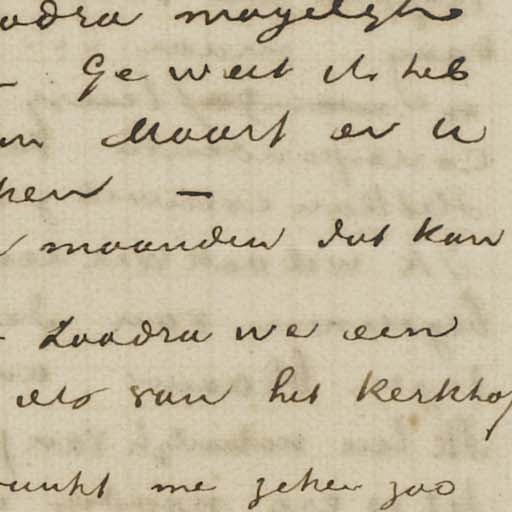 oodra mogelijk
– Ge weet ik heb
en Maart er U
ken –
maanden dat kan
– Zoodra we een
iets van het kerkhof
runkt me zeker zoo